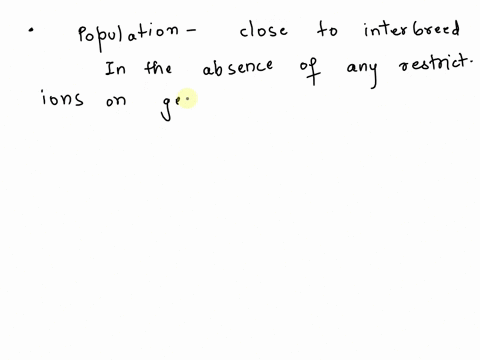 • Population - close to interbreed
In the absence of any restrict-
ions on ge